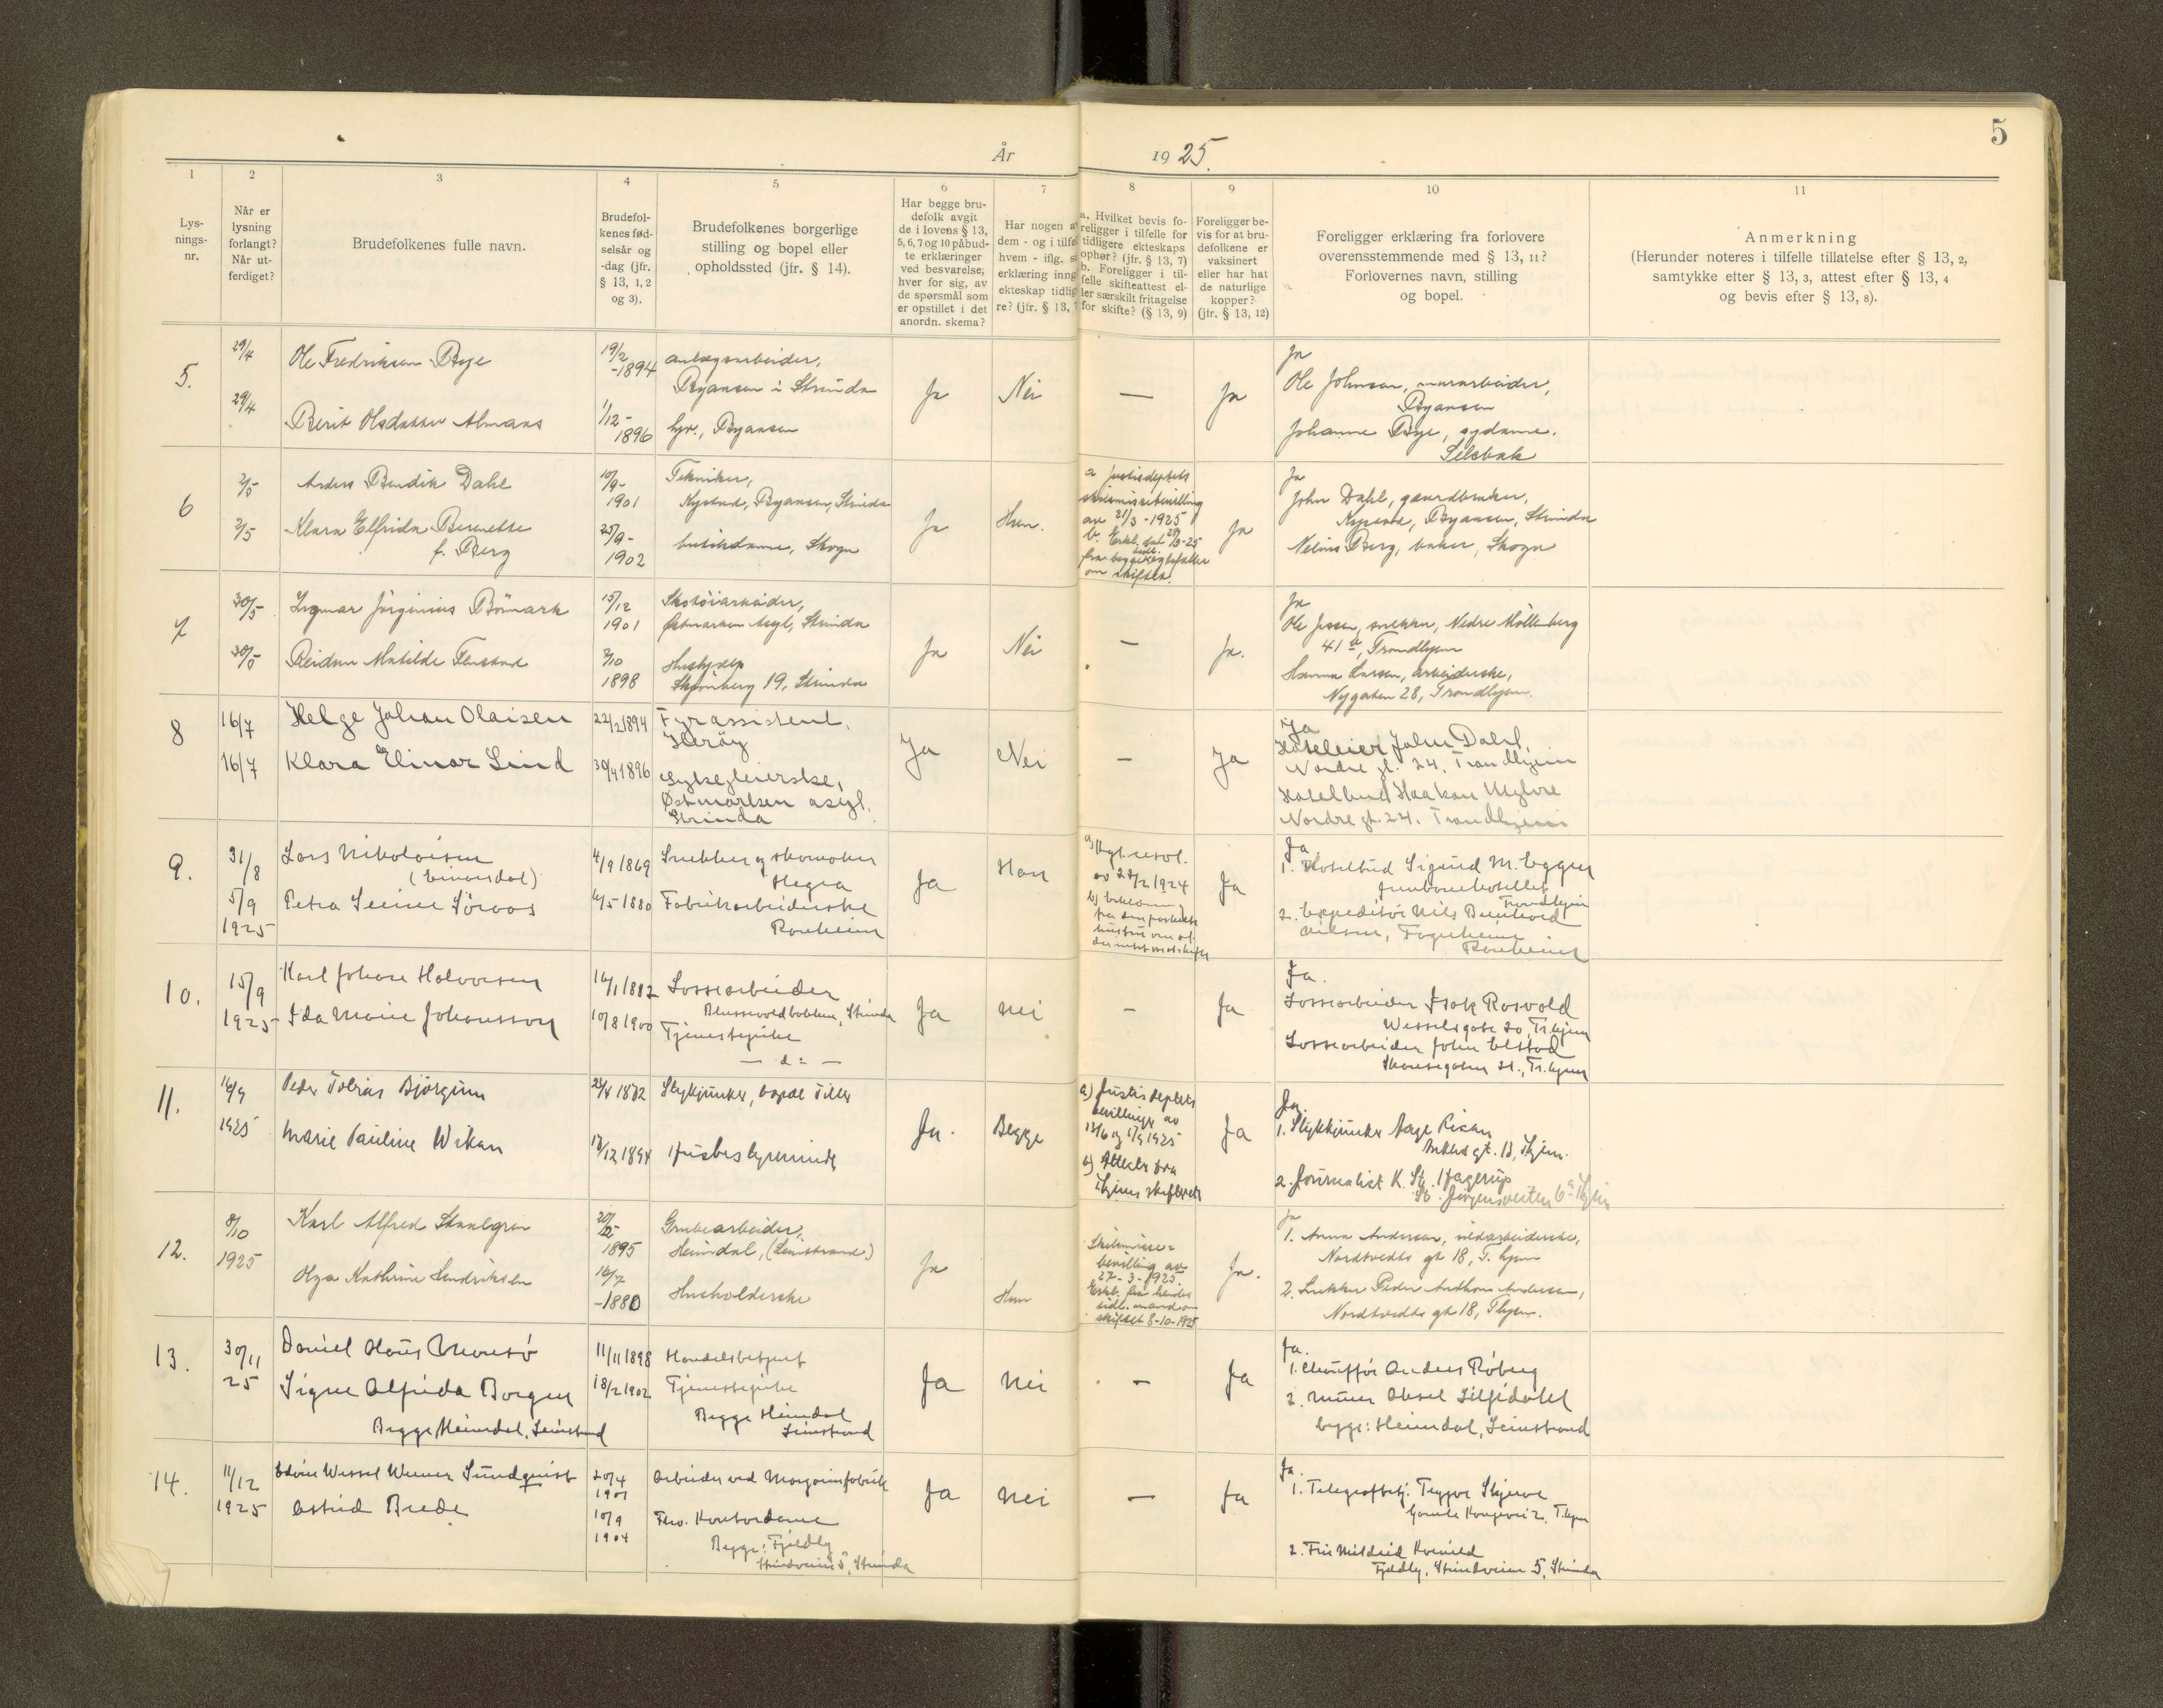 5
År 1925.
1 2 3 4 5 6 7 8 9 10 11
Lys-
nings-
nr.
Når er
lysning
forlangt?
Når ut-
ferdiget?
Brudefolkenes fulle navn.
Brudefol-
kenes fød-
selsår og
-dag (jfr.
§ 13, 1, 2
og 3).
Brudefolkenes borgerlige
stilling og bopel eller
opholdssted (jfr. § 14).
Har begge bru-
defolk avgit
de i lovens § 13,
5, 6, 7 og 10 påbud-
te erklæringer
ved besvarelse,
hver for sig, av
de spørsmål som
er opstillet i det
anordn. skema?
Har nogen a
dem - og i tilfe
hvem - iflg. s
erklæring inng
ekteskap tidlig
re? (jfr. § 13, 
a. Hvilket bevis fo-
religger i tilfelle for
tidligere ekteskaps
ophør? (jfr. § 13, 7)
b. Foreligger i til-
felle skifteattest el-
ler særskilt fritagelse
for skifte? (§ 13, 9)
Foreligger be-
vis for at bru-
defolkene er
vaksinert
eller har hat
de naturlige
kopper?
(jfr. § 13, 12)
Foreligger erklæring fra forlovere
overensstemmende med § 13, 11?
Forlovernes navn, stilling
og bopel.
Anmerkning
(Herunder noteres i tilfelle tillatelse efter § 13, 2,
samtykke efter § 13, 3, attest efter § 13, 4
og bevis efter § 13, 8).
5.
29/4
29/4
Ole Fredriksen Bye
Berit Olsdatter Almaas
19/2
-1894
1/12-
1896
anlægsarbeider,
Byaasen i Strinda
hyr., Byaasen
Ja
Nei
—
Ja
Ja
Ole Johnsen, murarbeider,
Byaasen
Johanne Bye, sydame.
Selsbak
6
2/5
2/5
Anders Bendik Dahl
Klara Elfrida Berenette
f. Berg
10/9-
1901
25/9-
1902
Tekniker,
Nystad, Byaasen, Strinda
butikdame, Skogn
Ja
Hun.
a Justisdeptets
skilsmissebevilling
av 21/3-1925
b. Erkl. dat
fra begge egtefæller
om skiftet.
Ja
Ja
John Dahl, gaardbruker,
Nystad, Byaasen, Strinda
Nelius Berg, baker, Skogn
7
30/5
30/5
Ingmar Jørginius Bømark
Reidun Matilde Fenstad
15/12
1901
2/10
1898
Skotøiarbeider,
Østmarken Asyl, Strinda
Hushjelp
Skjønberg 19, Strinda
Ja
Nei
—
Ja.
Ja
Ole Jessen, snekker, Nedre Møllenberg
41 b, Trondhjem
Hanna Larsen, arbeiderske,
Nygaten 28, Trondhjem.
8
16/7
16/7
Helge Johan Olaisen
Klara Elinor Lind
22/2 1894
30/4 1896
Fyrassistent,
Herøy
Sykepleierske,
Østmarken asyl.
Strinda
Ja
Nei
—
Ja
Ja
Hoteleier John Dahl,
Nordre gt. 24, Trondhjem
Hotelbud Haakon Myhre
Nordre gt. 24. Trondhjem
9.
31/8
5/9
1925
Lars Nikolaisen
(Einarsdal)
Petra Senine Sørvos
4/9 1869
16/5 1880
Snekker og skomaker
Hegra
Fabrikarbeiderske
Ranheim
Ja
Han
a) Kgl. resol.
av 29/2 1924
Ja
Ja
1. Hotelbud Sigurd M. Eggen
Jernbanehotellet
Trondhjem
2. Expeditør Nils Bernhard
Nilsen, Fagerheim
Ranheim
10.
15/9
1925
Karl Johan Halvorsen
Ida Marie Johansson
16/1 1882
10/8 1900
Lossearbeider
Blussuvoldbakken, Strinda
Tjenestepike
— d: —
Ja
nei
—
Ja
Ja.
Lossearbeider Isak Rosvold
Wesselsgate 20, Tr.hjem
Lossearbeider John Elstad
Tr.hjem
11.
16/9
1925
Peder Tobias Bjørgum
Marie Pauline Wikan
23/4 1872
12/12 1894
Stykjunker, bopel Tiller
Husbestyrerinde
Ja.
Begge
a) Justisdeptets
bevillinger av
13/6 og 17/9 1925
b) Attester fra
Thjems skifterett
Ja
Ja.
1. Stykkjunker Aage Risan
2. Journalist K. St. Hagerup
St. Jørgensveiten 6a Thjem
12.
8/10
1925
Karl Alfred Staalgren
Olga Kathrine Hendriksen
20/12-
1895
16/7
-1880
Grubearbeider,
Heimdal, (Leinstrand)
Husholderske
Ja
Hun
Skilsmisse-
bevilling av
27-3-1925.
Erkl. fra hendes
tidl. mand om
skiftet 8-10-1925
Ja.
Ja
1. Anna Andersen, arbeiderske,
Nordtvedts gt 18, T.hjem
2. Snekker Peder Anthon Andersen,
Nordtvedts gt 18, Thjem.
13.
30/11
25
Daniel Hans Monsø
Signe Alfrida Borgen
Begge Heimdal, Leinstrand
11/11 1898
18/2 1902
Handelsbetjent
Tjenestepike
Begge Heimdal
Leinstrand
Ja
nei
—
Ja
Ja.
1. Chauffør Anders Røberg
2. Murer Aksel Lilledahl
begge: Heimdal, Leinstrand
14.
11/12
1925
Edvin Wessel Werner Sundquist
Astrid Brede
20/4
1901
10/9
1904
Arbeider ved Margarinfabrik
Frø. Kontordame
Begge: Fjeldly
Strindveien 5, Strinda
Ja
nei
—
Ja
Ja.
1. Telegrafbetj. Trygve Skjerve
Gamle Kongevei 2, T.hjem
2. Frk. Mildrid Kvenild
Fjeldly, Strindveien 5, Strinda